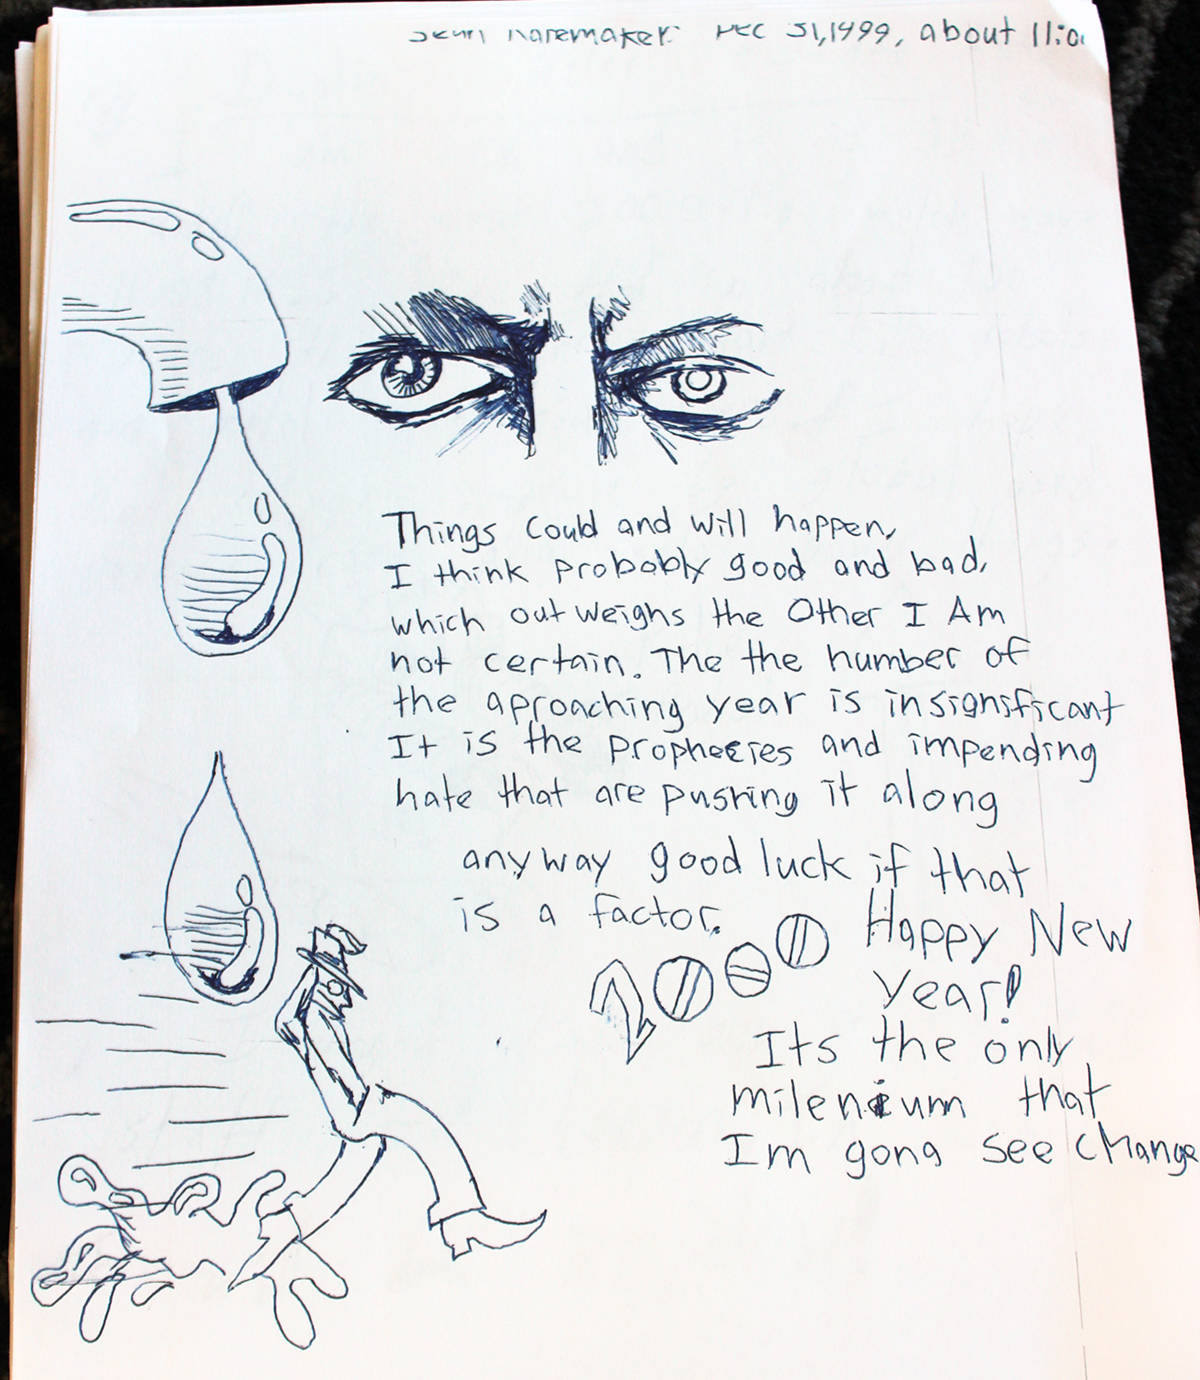 Naremaker Dec 31, 1999, about 11:0
Things could and will happen,
I think probably good and bad,
which out weighs the Other I Am
not certain. The the number of
the aproaching year is insignificant
It is the prophecies and impending
hate that are pushing it along
anyway good luck if that
is a factor.
2000
Happy New
Year!
Its the only
milenium that
Im gona see change